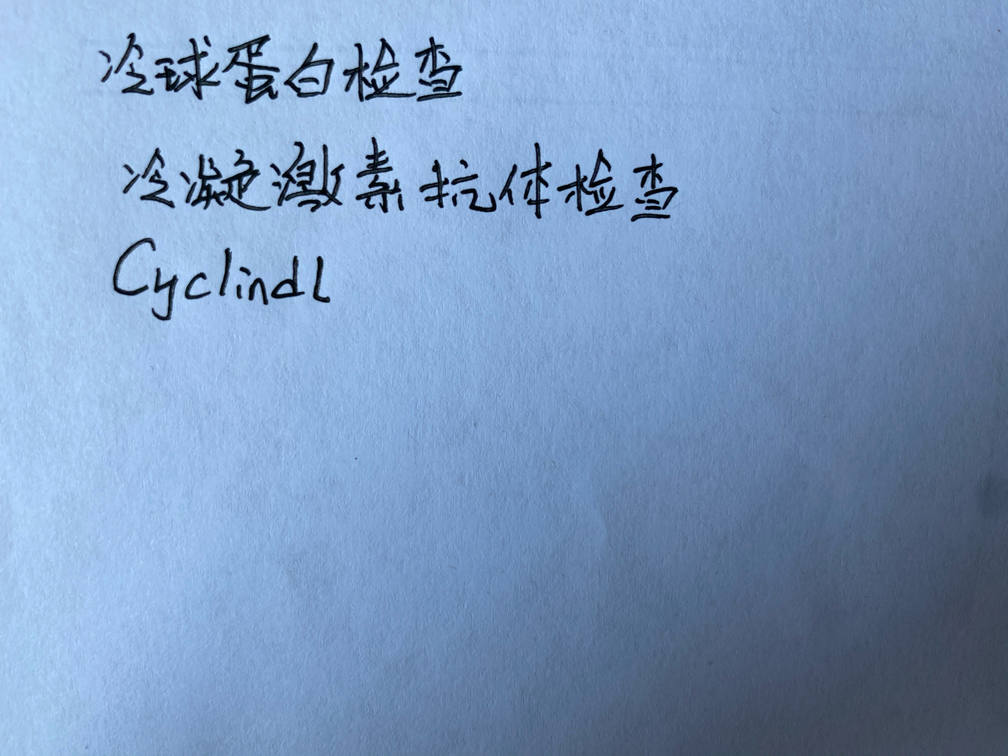 冷球蛋白检查
冷凝激素抗体检查
CyclindL